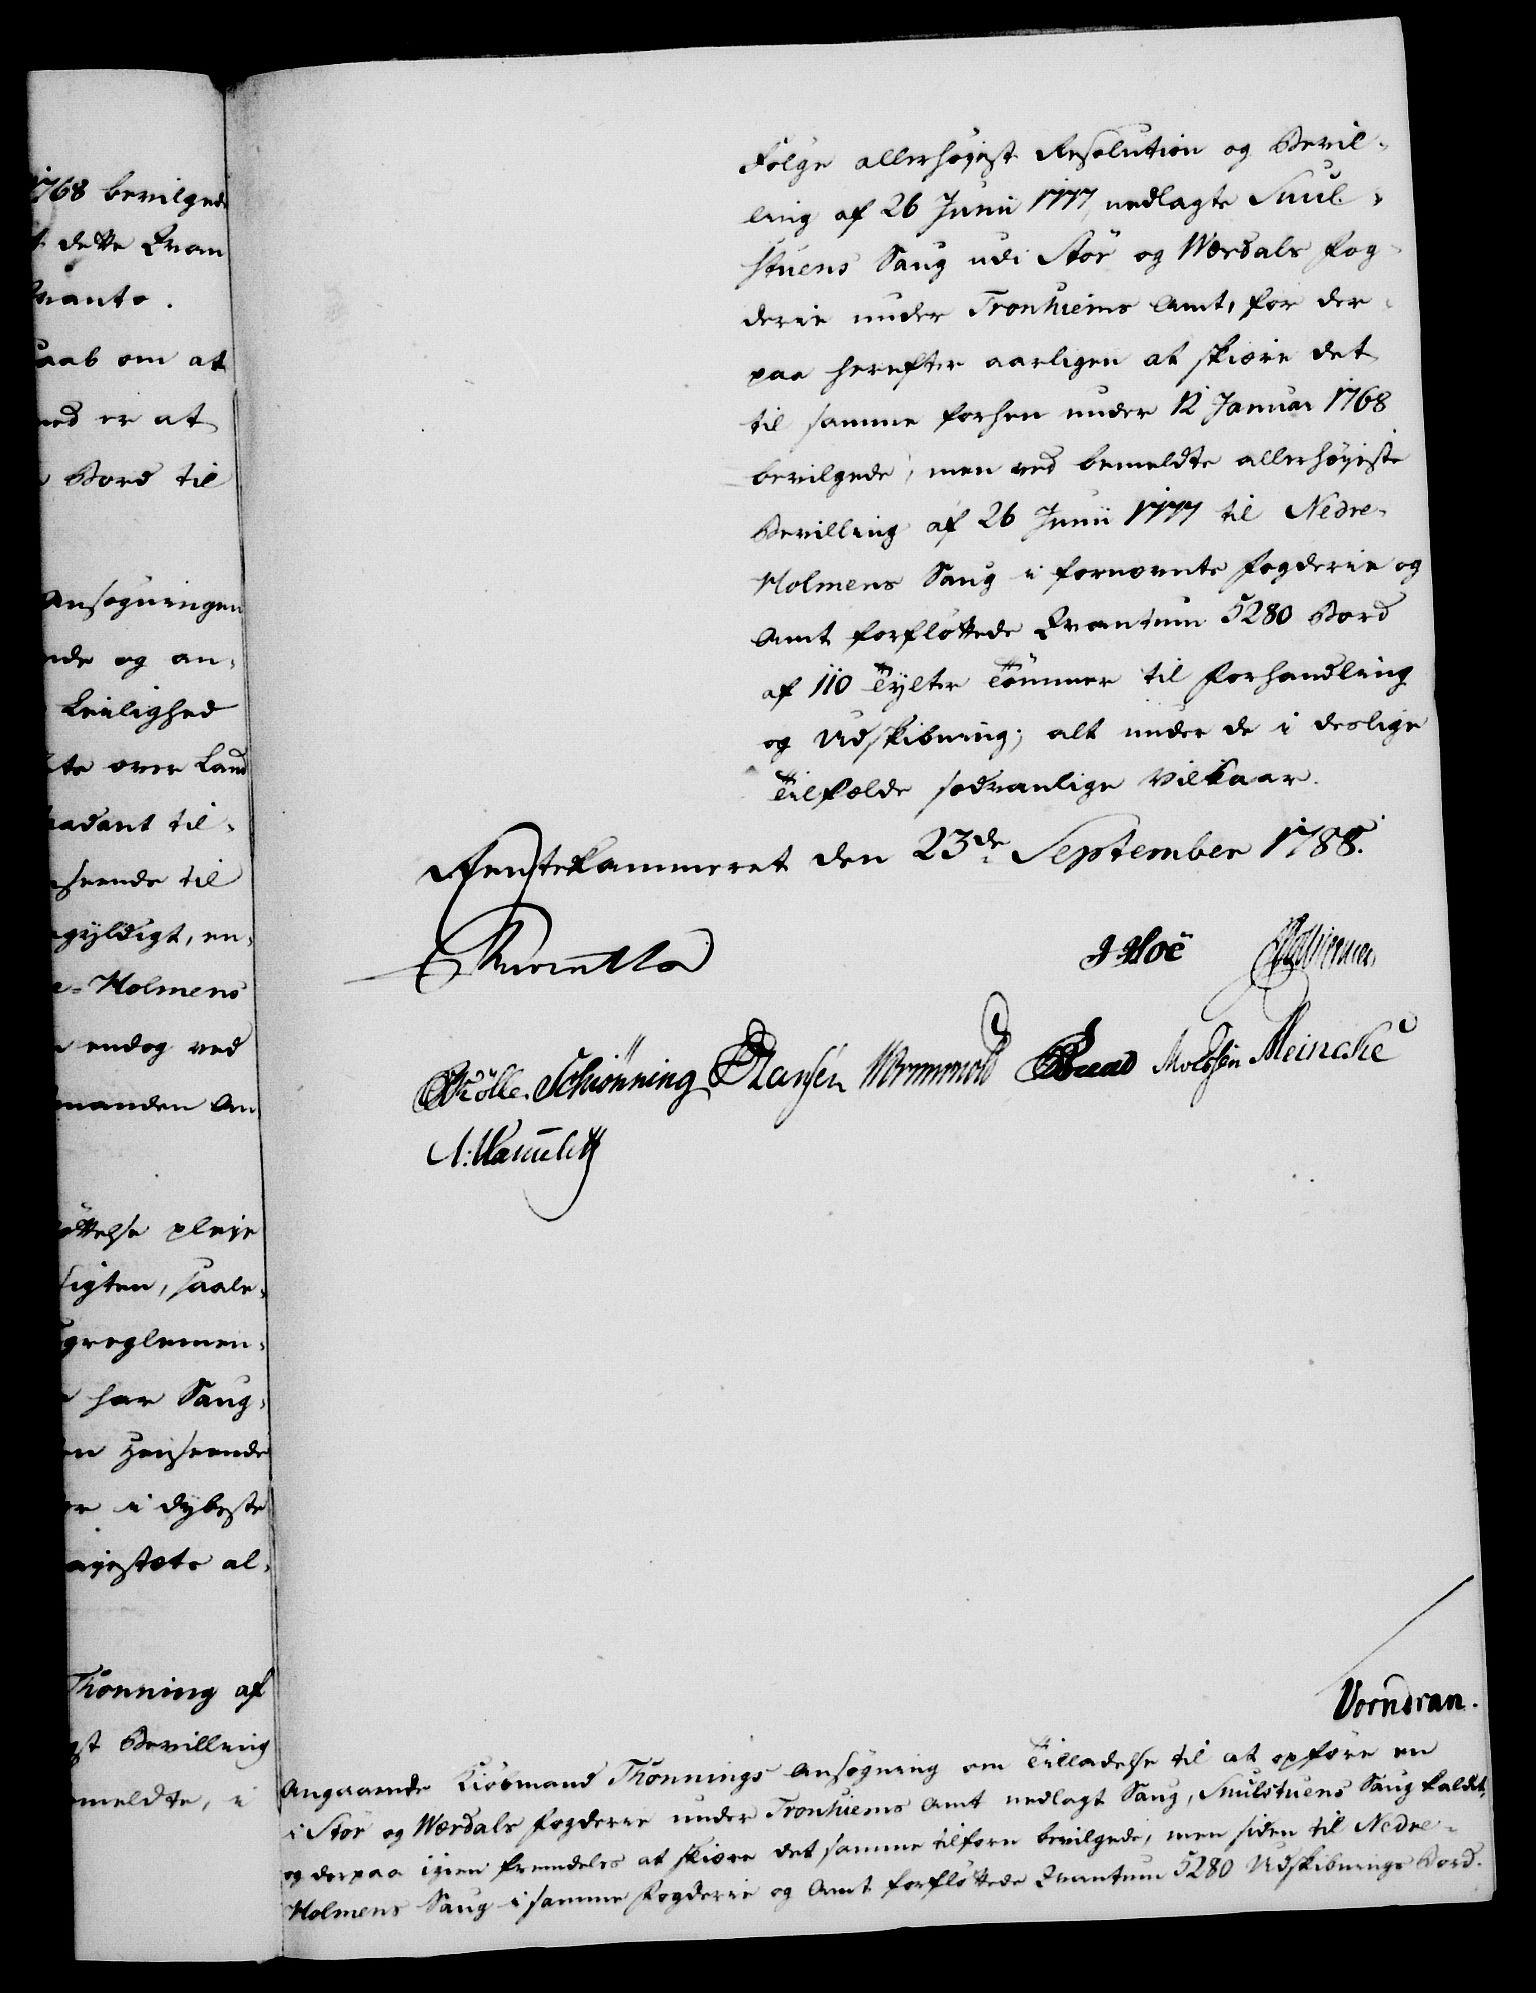 1768 bevilgede
dette Qvan
qvanto.
om at
er at
Bord til
Ansøgningen
og an-
Leilighed
over Land
til-
til
gyldigt, en-
Holmens
endog ved
manden An
pleje
saale-
greglemen-
har Saug-
Henseende
i dybeste
al-
Thonning af
Bevilling
meldte, i
Følge allerhøyest Resolution og Bevil-
ling af 26 Junii 1777 nedlagte Suul-
stuens Saug udi Stör og Wærdals Fog-
derie under Tronhiems Amt, for der-
paa herefter aarligen at skiære det
til samme forhen under 12 Januar 1768
bevilgede, men ved bemeldte allerhøyeste
Bevilling af 26 Junii 1777 til Nedre-
Holmens Saug i fornævnte Fogderie og
Amt forflöttede Qvantum 5280 Bord
af 110 Tylter Tömmer til Forhandling
og Udskibning; alt under de i deslige
Tilfælde sædvanlige Vilkaar.
Rentekammeret den 23de September 1788.
J Hoë
Schiönning Hansen Wormskiold Meincke
Vorndran.
Angaaende Kiöbmand Thonnings Ansøgning om Tilladelse til at opføre en
i Stör og Wærdals Fogderie under Tronhiems Amt nedlagt Saug, Suulstuens Saug kaldet,
og derpaa igien fremdeles at skiære det samme tilforn bevilgede, men siden til Nedre-
Holmens Saug i samme Fogderie og Amt forflöttede Qvantum 5280 Udskibnings Bord.